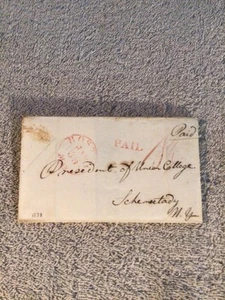 Paid
BOS
PAID
President of Union College
Schenectady
N. Y.